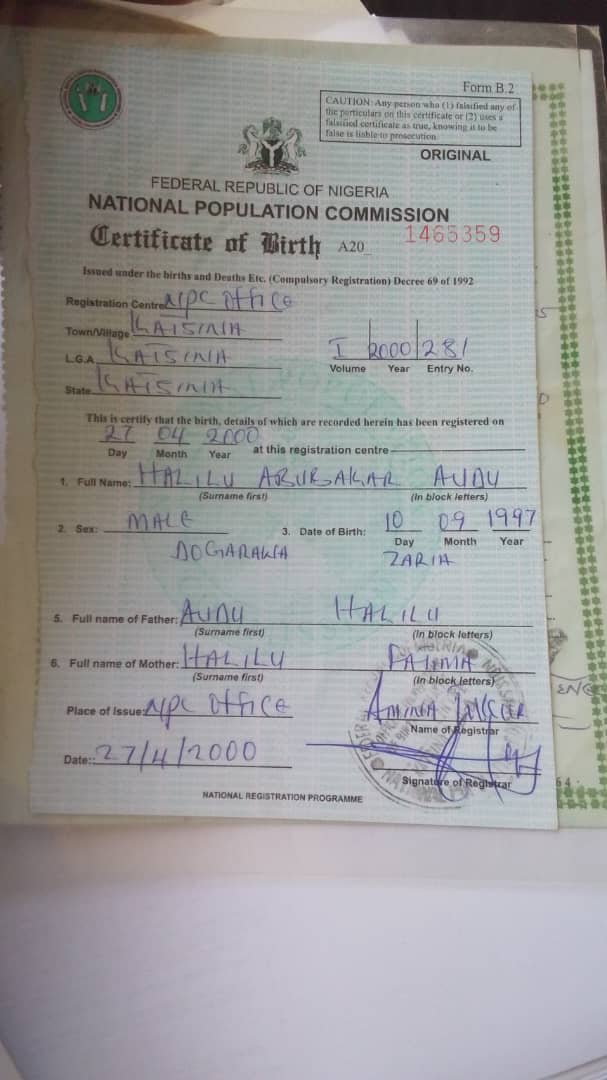 Form B.2
CAUTION: Any person who (1) falsified any of
the particulars on this certificate or (2) uses a
falsified certificate as true, knowing it to be
false is liable to prosecution
ORIGINAL
FEDERAL REPUBLIC OF NIGERIA
NATIONAL POPULATION COMMISSION
Certificate of Birth A20 1465359
Issued under the births and Deaths Etc. (Compulsory Registration) Decree 69 of 1992
Registration Centre NPC OffICE
Town/Village KATSINA
L.G.A. KATSINA I 2000 281
Volume Year Entry No.
State KATSINA
This is certify that the birth, details of which are recorded herein has been registered on
27 04 2000 at this registration centre
Day Month Year
1. Full Name: HALILU ABUBAKAR AUDU
(Surname first) (In block letters)
2. Sex: MALE 3. Date of Birth: 10 09 1997
Day Month Year
DOGARAWA ZARIA
5. Full name of Father: AUDU HALILU
(Surname first) (In block letters)
6. Full name of Mother: HALILU FATIMA
(Surname first) (In block letters)
Place of Issue: NPC OffICE AMINA
Name of Registrar
Date: 27/4/2000
Signature of Registrar
NATIONAL REGISTRATION PROGRAMME